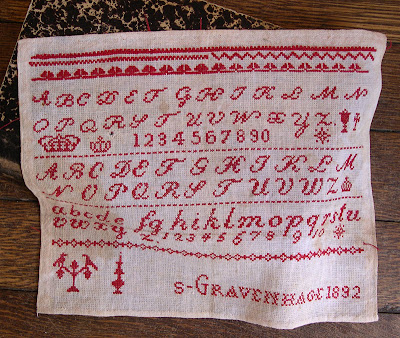 A B C D E F G H I K L M N
O P Q R S T U V W X Y Z
1 2 3 4 5 6 7 8 9 0
A B C D E F G H I K L M
N O P Q R S T U V W Z
a b c d e f g h i k l m o p q r s t u
v w x y z 1 2 3 4 5 6 7 8 9 10
s-GRAVENHAGE 1892